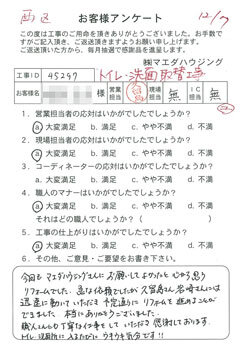 西区
お客様アンケート
12/9
この度は工事のご用命を頂きありがとうございました。お手数で
すがご記入頂き、ご返送頂きますようお願い申し上げます。
ご返送頂いた方から、毎月抽選で感謝品を進呈します。
㈱マエダハウジング
工事ID 45297 トイレ・洗面取替工事
お客様名 様 営業担当 現場担当 無 IC担当 無
1．営業担当者の対応はいかがでしたでしょうか？
a 大変満足 b. 満足 c. やや不満 d. 不満
2．現場担当者の対応はいかがでしたでしょうか？
a 大変満足 b. 満足 c. やや不満 d. 不満
3．コーディネーターの対応はいかがでしたでしょうか？
a. 大変満足 b. 満足 c. やや不満 d. 不満
4．職人のマナーはいかがでしたでしょうか？
a 大変満足 b. 満足 c. やや不満 d. 不満
それはどの職人でしょうか？（ ）
5．工事の仕上がりはいかがでしたでしょうか？
a 大変満足 b. 満足 c. やや不満 d. 不満
6．その他、ご意見・ご要望をお書き下さい。
今回もマエダハウジングさんにお願いしてよかったと心から思う
リフォームでした。急な依頼でしたが久富さん、岩崎さんには
迅速に動いていただき予定通りにリフォームを進めることが
できました。本当にありがとうございました。
職人さんも丁寧な仕事をしていただき感謝しております。
トイレ、洗面所に入るたびにウキウキ気分です!!